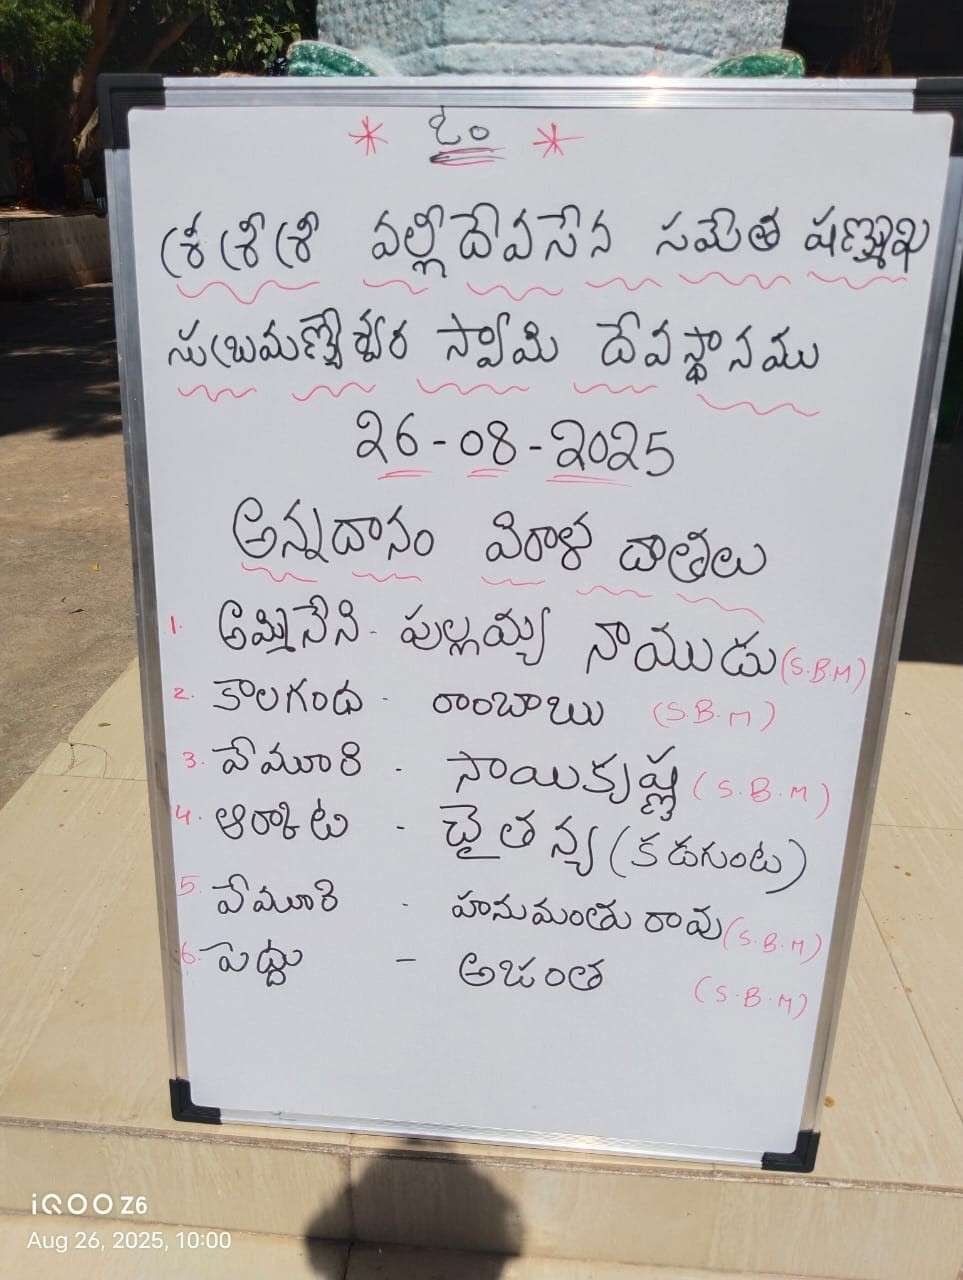 * ఓం *
శ్రీ శ్రీ శ్రీ వల్లీదేవసేన సమేత షణ్ముఖ
సుబ్రమణ్యేశ్వర స్వామి దేవస్థానము
26-08-2025
అన్నదానం విరాళ దాతలు
1. అమ్మినేని - పుల్లయ్య నాయుడు (S.B.M)
2. కాలగండ - రాంబాబు (S.B.M)
3. వేమూరి - సాయికృష్ణ (S.B.M)
4. ఆర్కాట - చైతన్య (కడగుంట)
5. వేమూరి - హనుమంతు రావు (S.B.M)
6. పెద్దు - అజంత (S.B.M)
iQOO Z6
Aug 26, 2025, 10:00